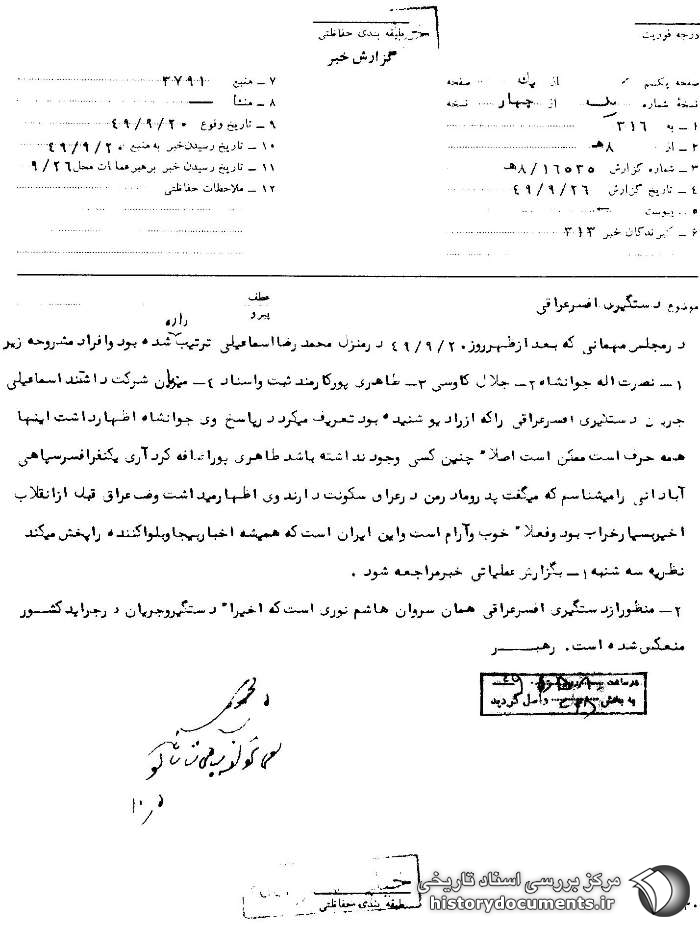 درجه فوریت
طبقه بندی حفاظتی
گزارش خبر
صفحه یکم از یك صفحه
نسخهٔ شماره یک از چهار نسخه
۱ــ به ۳۱۶
۲ــ از ۸هـ
۳ــ شماره گزارش ۸/۱۶۵۳۵هـ
۴ــ تاریخ گزارش ۴۹/۹/۲۶
۵ــ پیوست ــ
۶ــ گیرندگان خبر ۳۱۳
۷ــ منبع ۳۷۹۱
۸ــ منشأ ــ
۹ــ تاریخ وقوع ۴۹/۹/۲۰
۱۰ــ تاریخ رسیدن خبر به منبع ۴۹/۹/۲۰
۱۱ــ تاریخ رسیدن خبر برهبر عملیات محل ۹/۲۶
۱۲ــ ملاحظات حفاظتی
موضوع دستگیری افسر عراقی
عطف
پیرو
درمجلس مهمانی که بعد ازظهرروز ۴۹/۹/۲۰ درمنزل محمد رضا اسماعیلی ترتیب داده شده بود وافراد مشروحه زیر
۱ــ نصرت اله جوانشاه ۲ــ جلال کاوسی ۳ــ طاهری پورکارمند ثبت واسناد ۴ــ میزبان شرکت داشتند اسماعیلی
جریان دستگیری افسرعراقی راکه ازرادیو شنیده بود تعریف میکرد درپاسخ وی جوانشاه اظهارداشت اینها
همه حرف است ممکن است اصلا" چنین کسی وجود نداشته باشد طاهری پوراضافه کرد آری یکنفرافسرسپاهی
آبادانی رامیشناسم که میگفت پدرومادرمن درعراق سکونت دارند وی اظهارمیداشت وضع عراق قبل ازانقلاب
اخیربسیارخراب بود وفعلا" خوب وآرام است واین ایران است که همیشه اخباربیجا وبلواکننده راپخش میکند
نظریه سه شنبه ۱ــ بگزارش عملیاتی خبرمراجعه شود .
۲ــ منظورازدستگیری افسرعراقی همان سروان هاشم نوری است که اخیرا" دستگیروجریان درجراید کشور
منعکس شده است. رهبر
درساعت
به بخش واصل گردید
طبقه بندی حفاظتی
مرکز بررسی اسناد تاریخی
historydocuments.ir